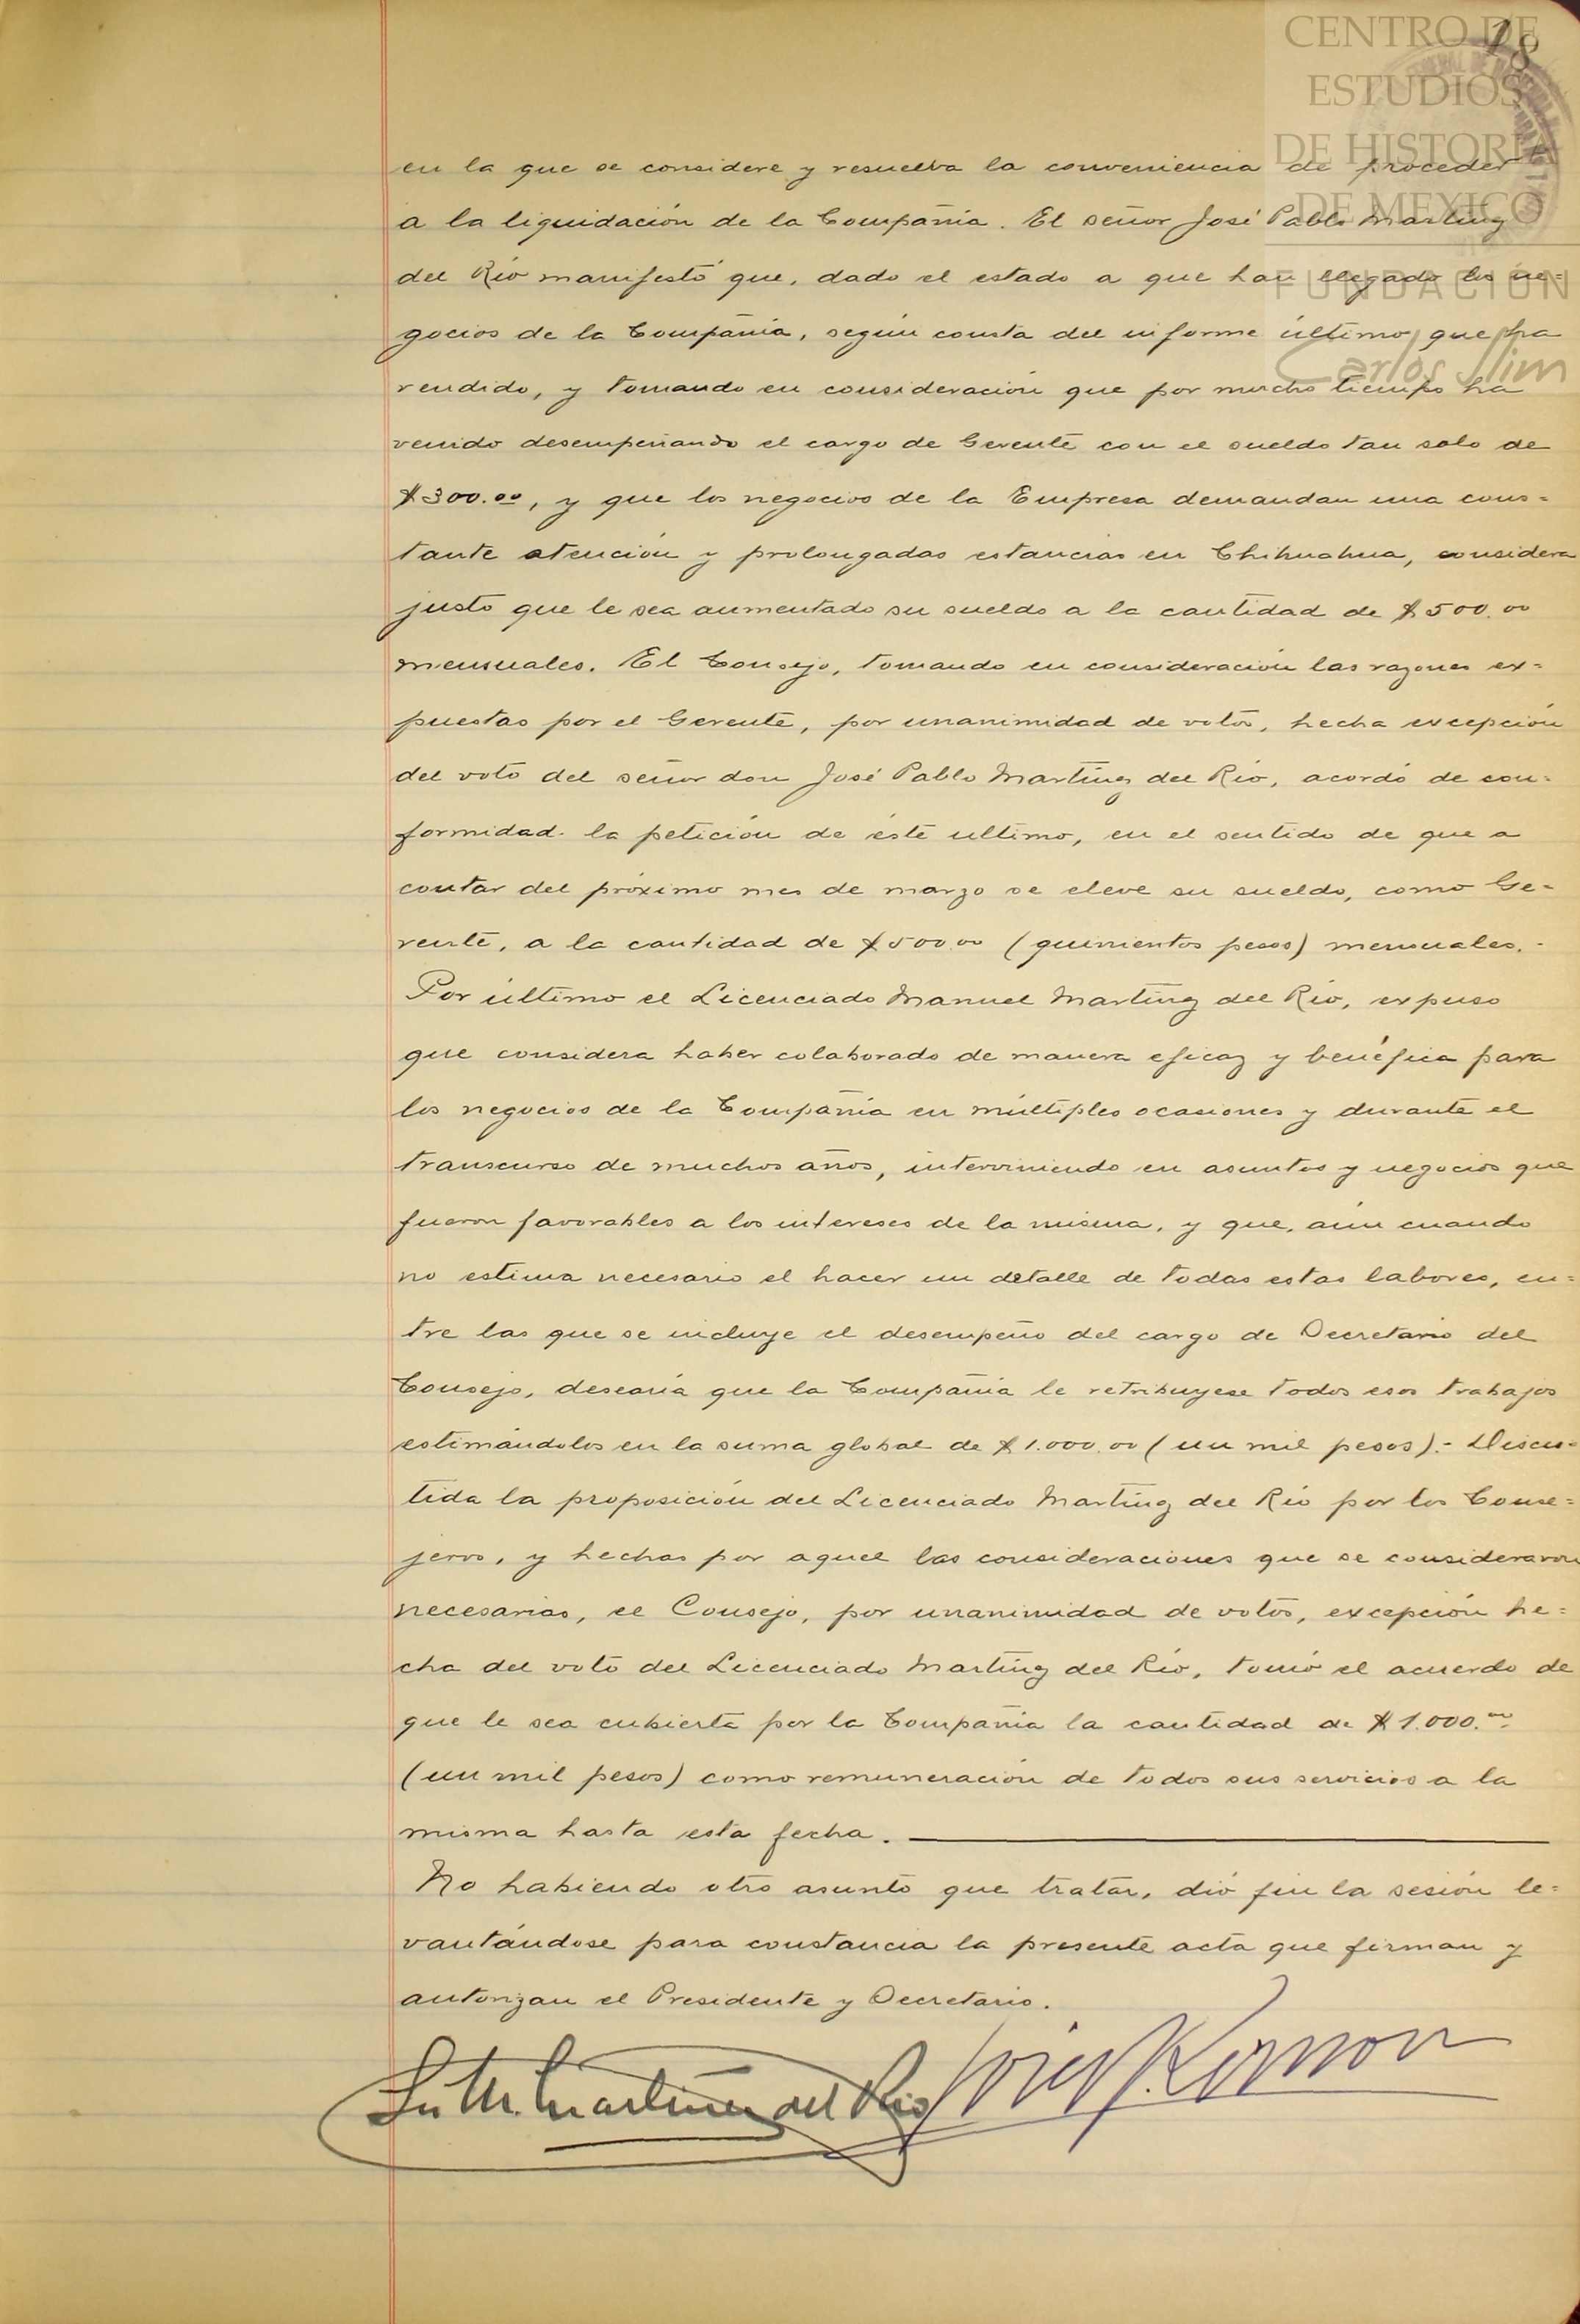 CENTRO DE
ESTUDIOS
DE HISTORIA
DE MEXICO
FUNDACIÓN
Carlos Slim
18
en la que se considere y resuelva la conveniencia de proceder
a la liquidación de la Compañía. El señor José Pablo Martínez
del Río manifestó que, dado el estado a que han llegado los ne=
gocios de la Compañía, según consta del informe último que ha
rendido, y tomando en consideración que por mucho tiempo ha
venido desempeñando el cargo de Gerente con el sueldo tan solo de
$300.00, y que los negocios de la Empresa demandan una cons=
tante atención y prolongadas estancias en Chihuahua, considera
justo que le sea aumentado su sueldo a la cantidad de $500.00
mensuales. El Consejo, tomando en consideración las razones ex=
puestas por el Gerente, por unanimidad de votos, hecha excepción
del voto del señor don José Pablo Martínez del Río, acordó de con=
formidad la petición de éste ultimo, en el sentido de que a
contar del próximo mes de marzo se eleve su sueldo, como Ge=
rente, a la cantidad de $500.00 (quinientos pesos) mensuales.-
Por último el Licenciado Manuel Martínez del Río, expuso
que considera haber colaborado de manera eficaz y benéfica para
los negocios de la Compañía en múltiples ocasiones y durante el
transcurso de muchos años, interviniendo en asuntos y negocios que
fueron favorables a los intereses de la misma, y que, aún cuando
no estima necesario el hacer un detalle de todas estas labores, en=
tre las que se incluye el desempeño del cargo de Secretario del
Consejo, desearía que la Compañía le retribuyese todos esos trabajos
estimándolos en la suma global de $1.000.00 (un mil pesos).- Discu=
tida la proposición del Licenciado Martínez del Río por los Conse=
jeros, y hechas por aquel las consideraciones que se consideraron
necesarias, el Consejo, por unanimidad de votos, excepción he=
cha del voto del Licenciado Martínez del Río, tomó el acuerdo de
que le sea cubierta por la Compañía la cantidad de $1.000.00
(un mil pesos) como remuneración de todos sus servicios a la
misma hasta esta fecha.
No habiendo otro asunto que tratar, dió fin la sesión le=
vantándose para constancia la presente acta que firman y
autorizan el Presidente y Secretario.
Martínez del Rio